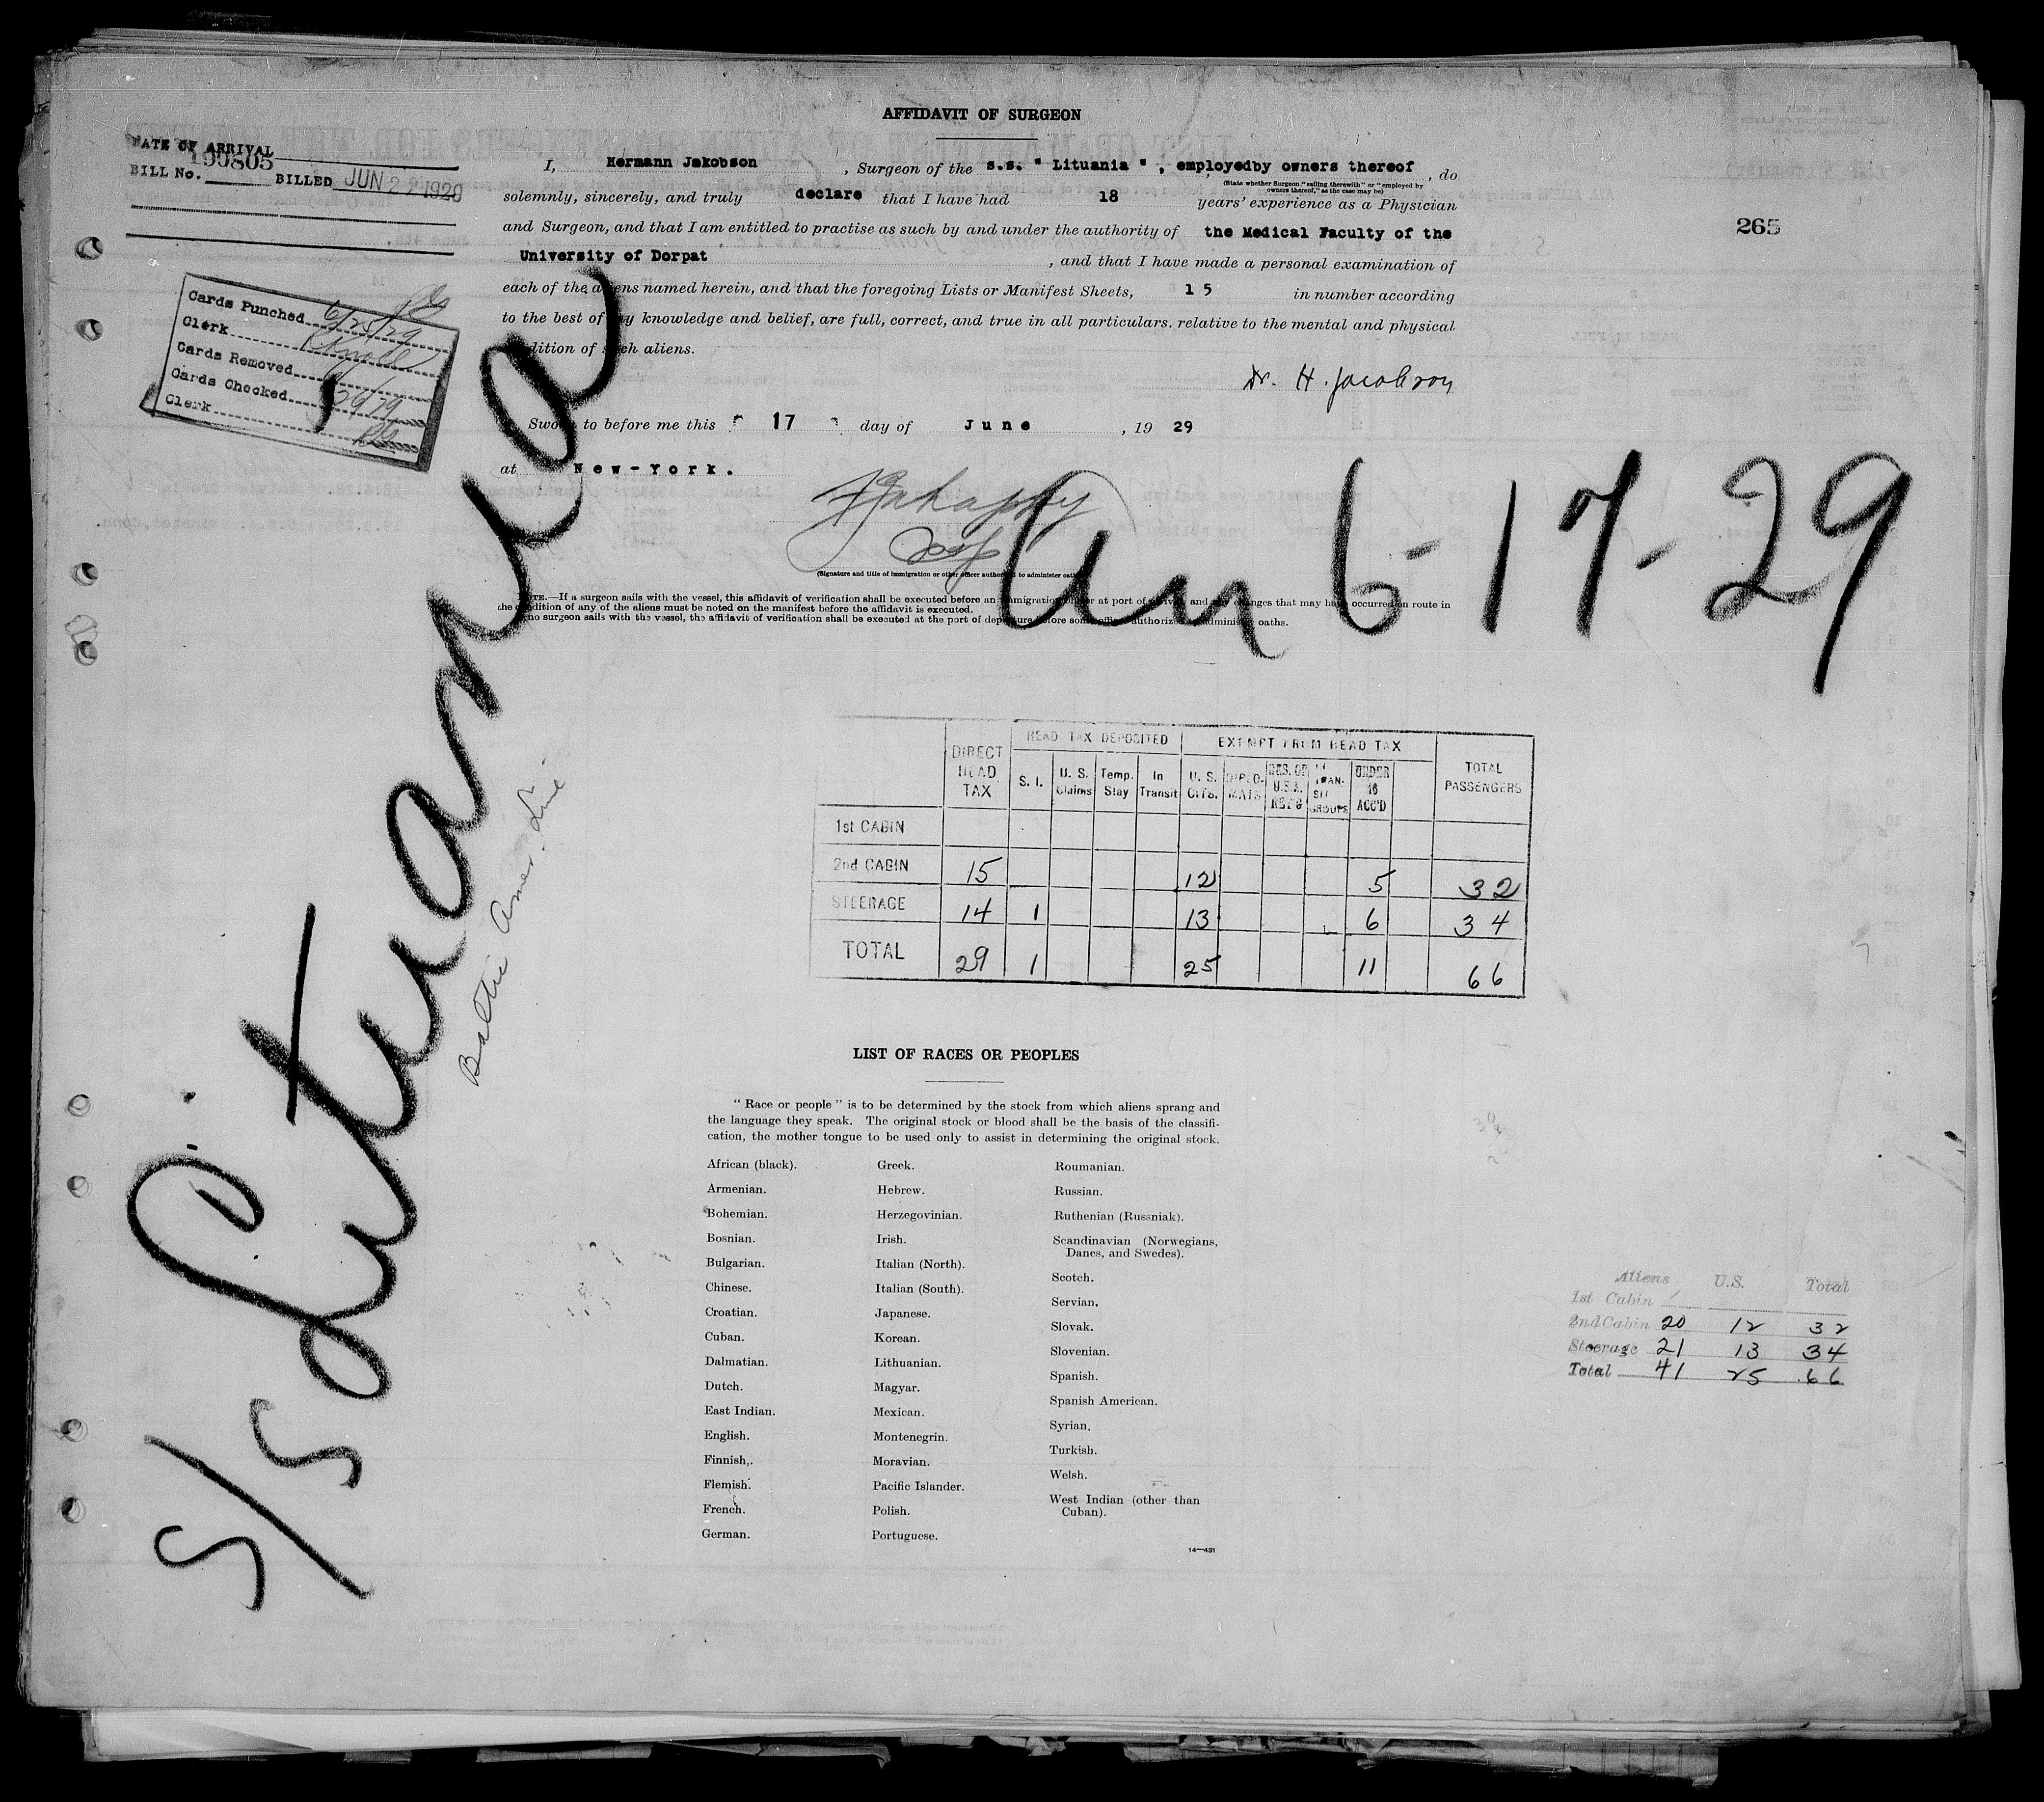 AFFIDAVIT OF SURGEON
DATE OF ARRIVAL
BILL No. 190805 BILLED JUN 22 1929
265
I, Hermann Jakobson, Surgeon of the s.s. " Lituania ", employedby owners thereof, do
(State whether Surgeon "sailing therewith" or "employed by
owners thereof," as the case may be)
solemnly, sincerely, and truly declare that I have had 18 years' experience as a Physician
and Surgeon, and that I am entitled to practise as such by and under the authority of the Medical Faculty of the
University of Dorpat, and that I have made a personal examination of
each of the aliens named herein, and that the foregoing Lists or Manifest Sheets, 15 in number according
to the best of my knowledge and belief, are full, correct, and true in all particulars, relative to the mental and physical
condition of such aliens.
Dr. H. Jacobson
Sworn to before me this 17 day of June, 19 29
at New-York.
(Signature and title of immigration or other officer authorized to administer oaths)
NOTE.—If a surgeon sails with the vessel, this affidavit of verification shall be executed before an immigration officer at port of arrival and any changes that may have occurred en route in
the condition of any of the aliens must be noted on the manifest before the affidavit is executed.
If no surgeon sails with the vessel, the affidavit of verification shall be executed at the port of departure before some officer authorized to administer oaths.
Cards Punched 6/25/29
Clerk
Cards Removed
Cards Checked
Clerk
S/S Lituania
Baltic Amer. Line
Arr 6-17-29
DIRECT HEAD TAX
HEAD TAX DEPOSITED
EXEMPT FROM HEAD TAX
TOTAL PASSENGERS
S. I. U. S. Claims Temp. Stay In Transit U. S. Cits. DIPLO-MATS RES. OF U.S.A. RET'G IN TRAN-SIT GROUPS UNDER 16 ACC'D
1st CABIN
2nd CABIN 15 12 5 32
STEERAGE 14 1 13 6 34
TOTAL 29 1 25 11 66
LIST OF RACES OR PEOPLES
"Race or people" is to be determined by the stock from which aliens sprang and
the language they speak. The original stock or blood shall be the basis of the classifi-
cation, the mother tongue to be used only to assist in determining the original stock.
African (black).
Armenian.
Bohemian.
Bosnian.
Bulgarian.
Chinese.
Croatian.
Cuban.
Dalmatian.
Dutch.
East Indian.
English.
Finnish.
Flemish.
French.
German.
Greek.
Hebrew.
Herzegovinian.
Irish.
Italian (North).
Italian (South).
Japanese.
Korean.
Lithuanian.
Magyar.
Mexican.
Montenegrin.
Moravian.
Pacific Islander.
Polish.
Portuguese.
Roumanian.
Russian.
Ruthenian (Russniak).
Scandinavian (Norwegians,
Danes, and Swedes).
Scotch.
Servian.
Slovak.
Slovenian.
Spanish.
Spanish American.
Syrian.
Turkish.
Welsh.
West Indian (other than
Cuban).
14—431
Aliens U.S. Total
1st Cabin
2nd Cabin 20 12 32
Steerage 21 13 34
Total 41 25 66